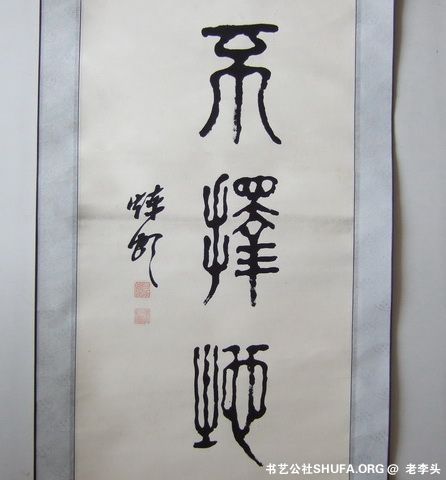 不擇地
书艺公社SHUFA.ORG @ 老李头